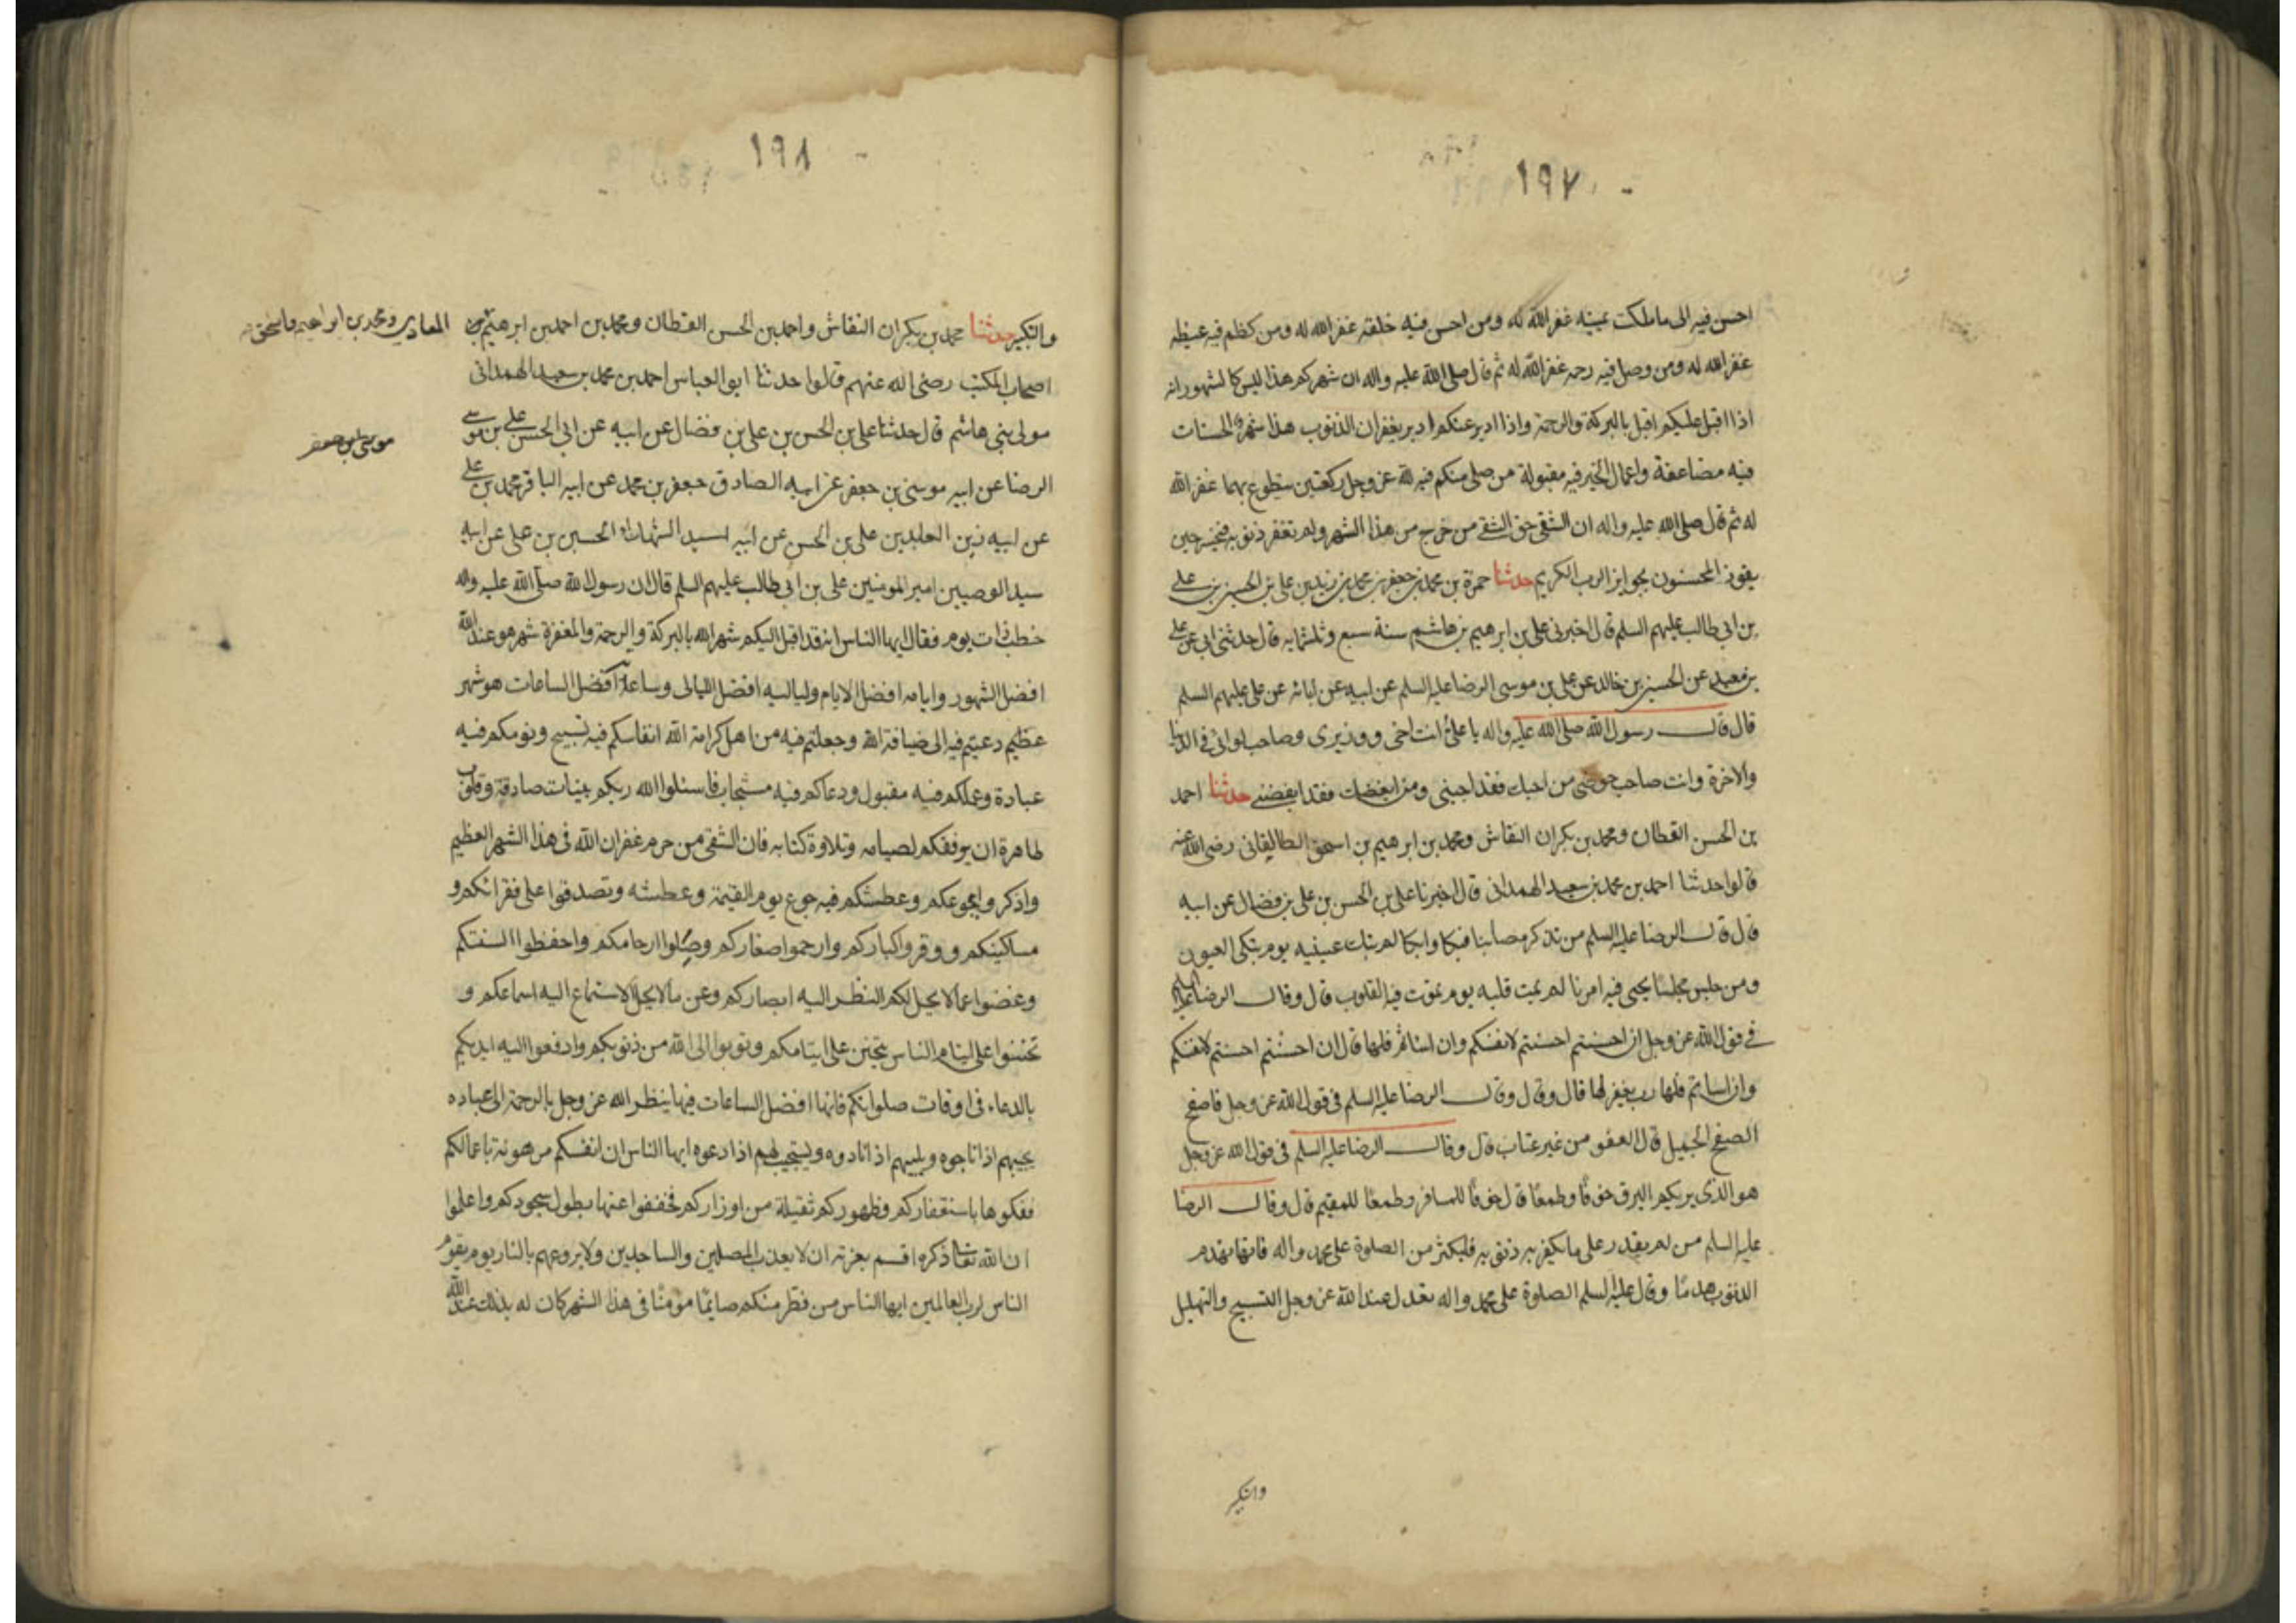 ١٩٧
احسن فيه الى ما ملكت يمينه غفر الله له ومن احسن فيه خلقه غفر الله له ومن كظم فيه غيظه
غفر الله له ومن وصل فيه رحمه غفر الله له ثم قال صلى الله عليه واله ان شهركم هذا ليس كالشهور انه
اذا اقبل عليكم اقبل بالبركة والرحمة واذا ادبر عنكم ادبر بغفران الذنوب هذا شهر الحسنات
فيه مضاعفة واعمال الخير فيه مقبولة من صلى منكم فيه لله عز وجل ركعتين يتطوع بهما غفر الله
له ثم قال صلى الله عليه واله ان الشقي حق الشقي من خرج من هذا الشهر ولم تغفر ذنوبه فيخسر حين
يفوز المحسنون بجوايز الرب الكريم حدثنا حمزة بن محمد بن جعفر بن محمد بن زيد بن علي بن الحسين بن علي
بن ابي طالب عليهم السلم قال اخبرني علي بن ابرهيم بن هاشم سنة سبع وثلثمايه قال حدثني ابي عن علي
بن معبد عن الحسين بن خالد عن علي بن موسى الرضا عليه السلم عن ابيه عن ابائه عن علي عليهم السلم
قال قال رسول الله صلى الله عليه واله يا علي انت اخي ووزيري وصاحب لوائي في الدنيا
والاخرة وانت صاحب حوضي من احبك فقد احبني ومن ابغضك فقد ابغضني حدثنا احمد
بن الحسن القطان ومحمد بن بكران النقاش ومحمد بن ابرهيم بن اسحق الطالقاني رضي الله عنه
قالوا حدثنا احمد بن محمد بن سعيد الهمداني قال اخبرنا علي بن الحسن بن علي بن فضال عن ابيه
قال قال الرضا عليه السلم من تذكر مصابنا فبكا وابكا لم تبك عينيه يوم تبكي العيون
ومن جلس مجلسا يحيى فيه امرنا لم يمت قلبه يوم تموت فيه القلوب قال وقال الرضا عليه السلم
في قول الله عز وجل ان احسنتم احسنتم لانفسكم وان اساتم فلها قال ان احسنتم احسنتم لانفسكم
وان اساتم فلها رب يغفر لها قال وقال وقال الرضا عليه السلم في قول الله عز وجل فاصفح
الصفح الجميل قال العفو من غير عتاب قال وقال الرضا عليه السلم في قول الله عز وجل
هو الذي يريكم البرق خوفًا وطمعًا قال خوفًا للمسافر وطمعًا للمقيم قال وقال الرضا
عليه السلم من لم يقدر على ما يكفر به ذنوبه فليكثر من الصلوة على محمد واله فانها تهدم
الذنوب هدمًا وقال عليه السلم الصلوة على محمد واله تعدل عند الله عز وجل التسبيح والتهليل
والتكبير
١٩٨
والتكبير حدثنا محمد بن بكران النقاش واحمد بن الحسن القطان ومحمد بن احمد بن ابرهيم المعاذي ومحمد بن ابراهيم بن اسحق
اصحاب المكتب رضي الله عنهم قالوا حدثنا ابو العباس احمد بن محمد بن سعيد الهمداني
مولى بني هاشم قال حدثنا علي بن الحسن بن علي بن فضال عن ابيه عن ابي الحسن علي بن موسى
موسى بن جعفر
الرضا عن ابيه موسى بن جعفر عن ابيه الصادق جعفر بن محمد عن ابيه الباقر محمد بن علي
عن ابيه زين العابدين علي بن الحسين عن ابيه سيد الشهداء الحسين بن علي عن ابيه
سيد الوصيين امير المومنين علي بن ابي طالب عليهم السلم قال ان رسول الله صلى الله عليه واله
خطب ذات يوم فقال ايها الناس انه قد اقبل اليكم شهر الله بالبركة والرحمة والمغفرة شهر هو عند الله
افضل الشهور وايامه افضل الايام ولياليه افضل الليالي وساعاته افضل الساعات هو شهر
عظيم دعيتم فيه الى ضيافة الله وجعلتم فيه من اهل كرامة الله انفاسكم فيه تسبيح ونومكم فيه
عبادة وعملكم فيه مقبول ودعاكم فيه مستجاب فاسئلوا الله ربكم بنيات صادقة وقلوب
طاهرة ان يوفقكم لصيامه وتلاوة كتابه فان الشقي من حرم غفران الله في هذا الشهر العظيم
واذكروا بجوعكم وعطشكم فيه جوع يوم القيمة وعطشه وتصدقوا على فقرائكم و
مساكينكم ووقروا كباركم وارحموا صغاركم وصلوا ارحامكم واحفظوا السنتكم
وغضوا عما لا يحل لكم النظر اليه ابصاركم وعن ما لا يحل الاستماع اليه اسماعكم و
تحننوا على ايتام الناس يتحنن على ايتامكم وتوبوا الى الله من ذنوبكم وارفعوا اليه ايديكم
بالدعاء في اوقات صلواتكم فانها افضل الساعات فيها ينظر الله عز وجل بالرحمة الى عباده
يجيبهم اذا ناجوه ويلبيهم اذا نادوه ويستجيب لهم اذا دعوه ايها الناس ان انفسكم مرهونة باعمالكم
ففكوها باستغفاركم وظهوركم ثقيلة من اوزاركم فخففوا عنها بطول سجودكم واعلموا
ان الله تعالى ذكره اقسم بعزته ان لا يعذب المصلين والساجدين ولا يروعهم بالنار يوم يقوم
الناس لرب العالمين ايها الناس من فطر منكم صائمًا مؤمنًا في هذا الشهر كان له بذلك عند الله